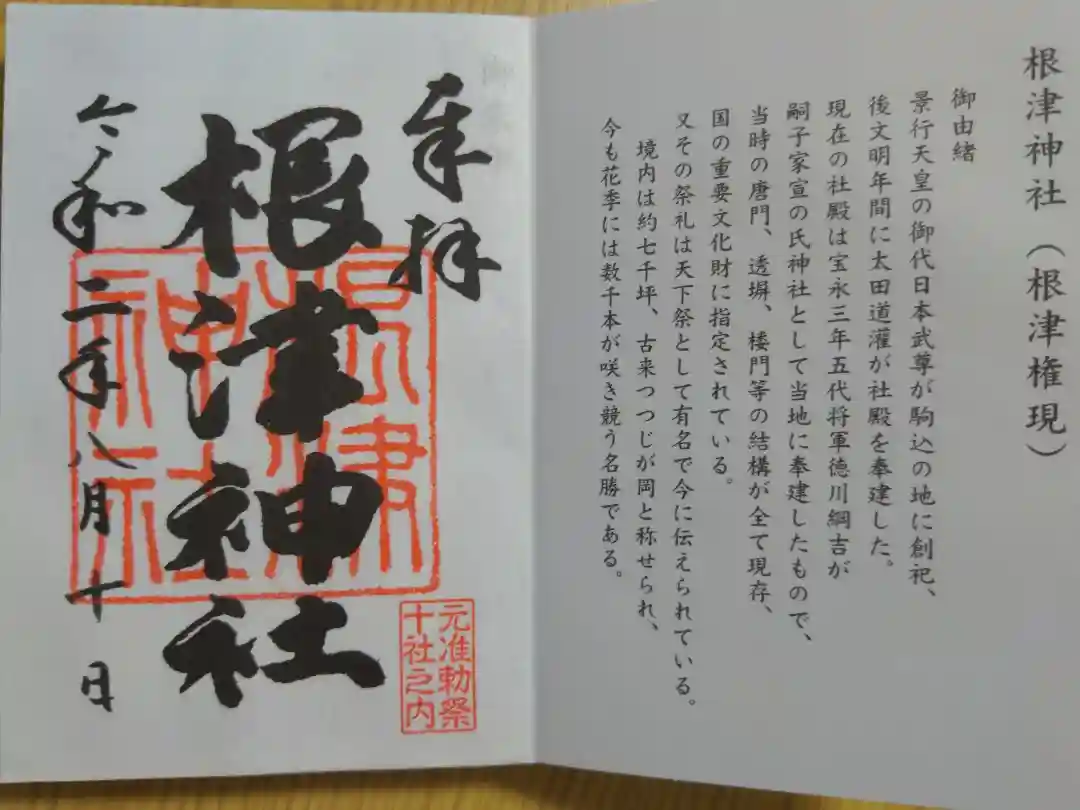 根津神社(根津権現)
御由緒
景行天皇の御代日本武尊が駒込の地に創祀、
後文明年間に太田道灌が社殿を奉建した。
現在の社殿は宝永三年五代将軍徳川綱吉が
嗣子家宣の氏神社として当地に奉建したもので、
当時の唐門、透塀、楼門等の結構が全て現存、
国の重要文化財に指定されている。
又その祭礼は天下祭として有名で今に伝えられている。
境内は約七千坪、古来つつじが岡と称せられ、
今も花季には数千本が咲き競う名勝である。
奉拝
根津神社
令和二年八月十日
根津
神社
元准勅祭
十社之内